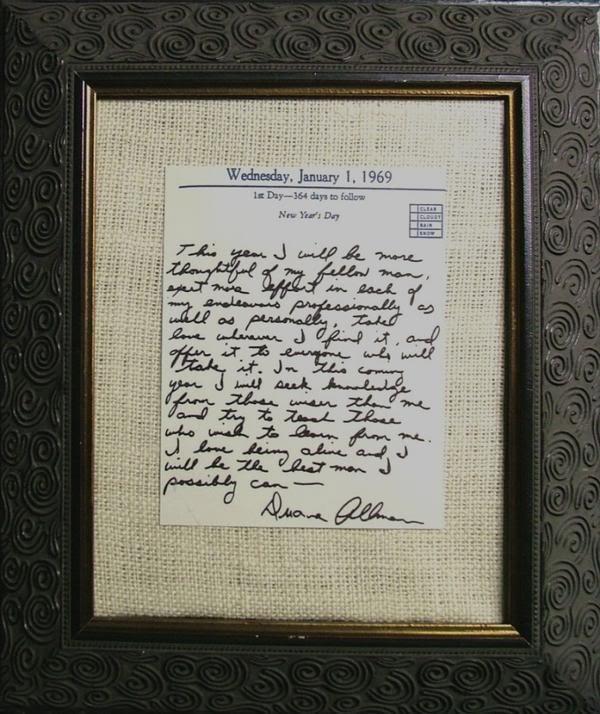 Wednesday, January 1, 1969
1st Day—364 days to follow
New Year's Day
CLEAR
CLOUDY
RAIN
SNOW
This year I will be more
thoughtful of my fellow man,
exert more effort in each of
my endeavors professionally as
well as personally, take
love wherever I find it, and
offer it to everyone who will
take it. In this coming
year I will seek knowledge
from those wiser than me
and try to teach those
who wish to learn from me.
I love being alive and I
will be the best man I
possibly can —
Duane Allman